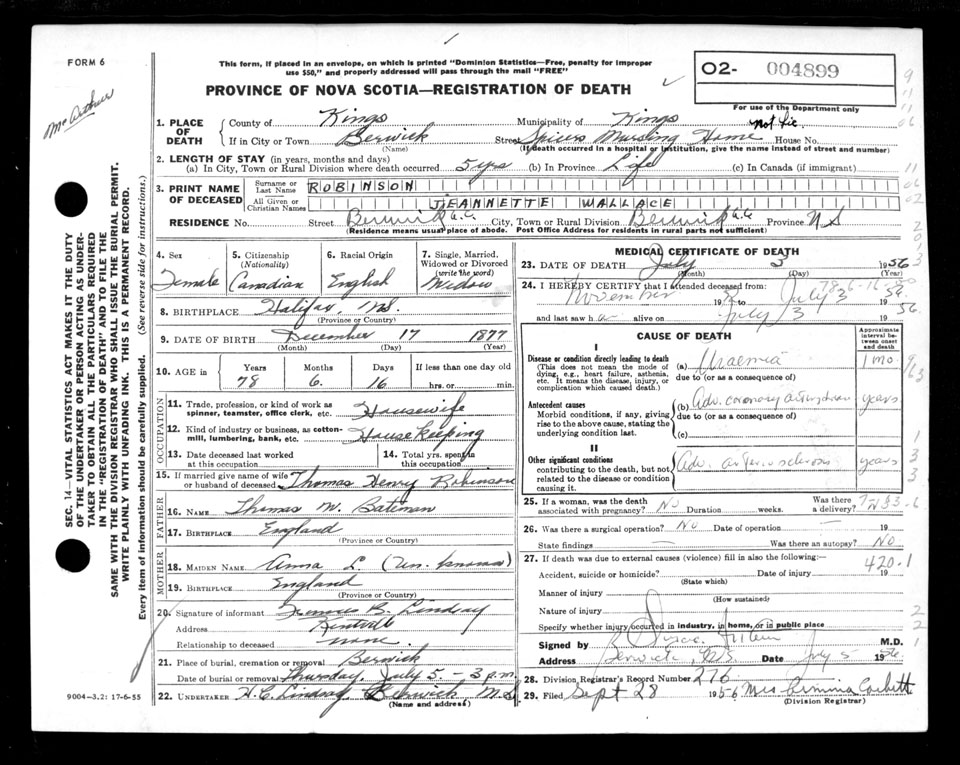 FORM 6
McArthur
This form, if placed in an envelope, on which is printed "Dominion Statistics—Free, penalty for improper
use $50," and properly addressed will pass through the mail "FREE"
PROVINCE OF NOVA SCOTIA—REGISTRATION OF DEATH
02- 004899
For use of the Department only
1. PLACE OF DEATH County of Kings Municipality of Kings not Lic.
If in City or Town Berwick Street Spicers Nursing Home House No.
(Name) (If death occurred in a hospital or institution, give the name instead of street and number)
2. LENGTH OF STAY (in years, months and days)
(a) In City, Town or Rural Division where death occurred 5 yrs (b) In Province Life (c) In Canada (if immigrant)
3. PRINT NAME OF DECEASED Surname or Last Name ROBINSON
All Given or Christian Names JEANNETTE WALLACE
RESIDENCE No. Street Berwick City, Town or Rural Division Berwick Province N S
(Residence means usual place of abode. Post Office Address for residents in rural parts not sufficient)
4. Sex Female
5. Citizenship (Nationality) Canadian
6. Racial Origin English
7. Single, Married, Widowed or Divorced (write the word) Widow
8. BIRTHPLACE Halifax, N.S.
(Province or Country)
9. DATE OF BIRTH December 17 1877
(Month) (Day) (Year)
10. AGE in Years 78 Months 6 Days 16 If less than one day old
hrs. or min.
OCCUPATION
11. Trade, profession, or kind of work as
spinner, teamster, office clerk, etc. Housewife
12. Kind of industry or business, as cotton-
mill, lumbering, bank, etc. Housekeeping
13. Date deceased last worked at this occupation
14. Total yrs. spent in this occupation
15. If married give name of wife
or husband of deceased Thomas Henry Robinson
FATHER
16. NAME Thomas W. Bateman
17. BIRTHPLACE England
(Province or Country)
MOTHER
18. MAIDEN NAME Anna L.
19. BIRTHPLACE England
(Province or Country)
20. Signature of informant B. Lindsay
Address Kentville
Relationship to deceased none
21. Place of burial, cremation or removal Berwick
Date of burial or removal Thursday, July 5 - 3 p.m.
22. UNDERTAKER H.C. Lindsay Berwick N.S
(Name and address)
MEDICAL CERTIFICATE OF DEATH
23. DATE OF DEATH July 3 1956
(Month) (Day) (Year)
24. I HEREBY CERTIFY that I attended deceased from:
November 19 to July 3 19 56
and last saw h alive on July 3 1956.
CAUSE OF DEATH
Approximate interval between onset and death
I
Disease or condition directly leading to death (a) Uraemia 1 mo.
(This does not mean the mode of dying, e.g., heart failure, asthenia, etc. It means the disease, injury, or complication which caused death.)
due to (or as a consequence of)
Antecedent causes (b) Adv. coronary years
Morbid conditions, if any, giving rise to the above cause, stating the underlying condition last.
due to (or as a consequence of)
(c)
II
Other significant conditions Adv. arteriosclerosis years
contributing to the death, but not related to the disease or condition causing it.
25. If a woman, was the death associated with pregnancy? No Duration weeks. Was there a delivery?
26. Was there a surgical operation? No Date of operation — 19
State findings — Was there an autopsy? No
27. If death was due to external causes (violence) fill in also the following: 420.1
Accident, suicide or homicide? Date of injury 19
(State which)
Manner of injury
(How sustained)
Nature of injury
Specify whether injury occurred in industry, in home, or in public place
Signed by M.D.
Address Berwick, N.S. Date July 5 1956
28. Division Registrar's Record Number 276
29. Filed Sept 28 1956 Mrs Corbett
(Division Registrar)
SEC. 14—VITAL STATISTICS ACT MAKES IT THE DUTY
OF THE UNDERTAKER OR PERSON ACTING AS UNDER-
TAKER TO OBTAIN ALL THE PARTICULARS REQUIRED
IN THE "REGISTRATION OF DEATH" AND TO FILE THE
SAME WITH THE DIVISION REGISTRAR WHO SHALL ISSUE THE BURIAL PERMIT.
WRITE PLAINLY WITH UNFADING INK. THIS IS A PERMANENT RECORD.
Every item of information should be carefully supplied. (See reverse side for instructions.)
9004-3.2: 17-6-55